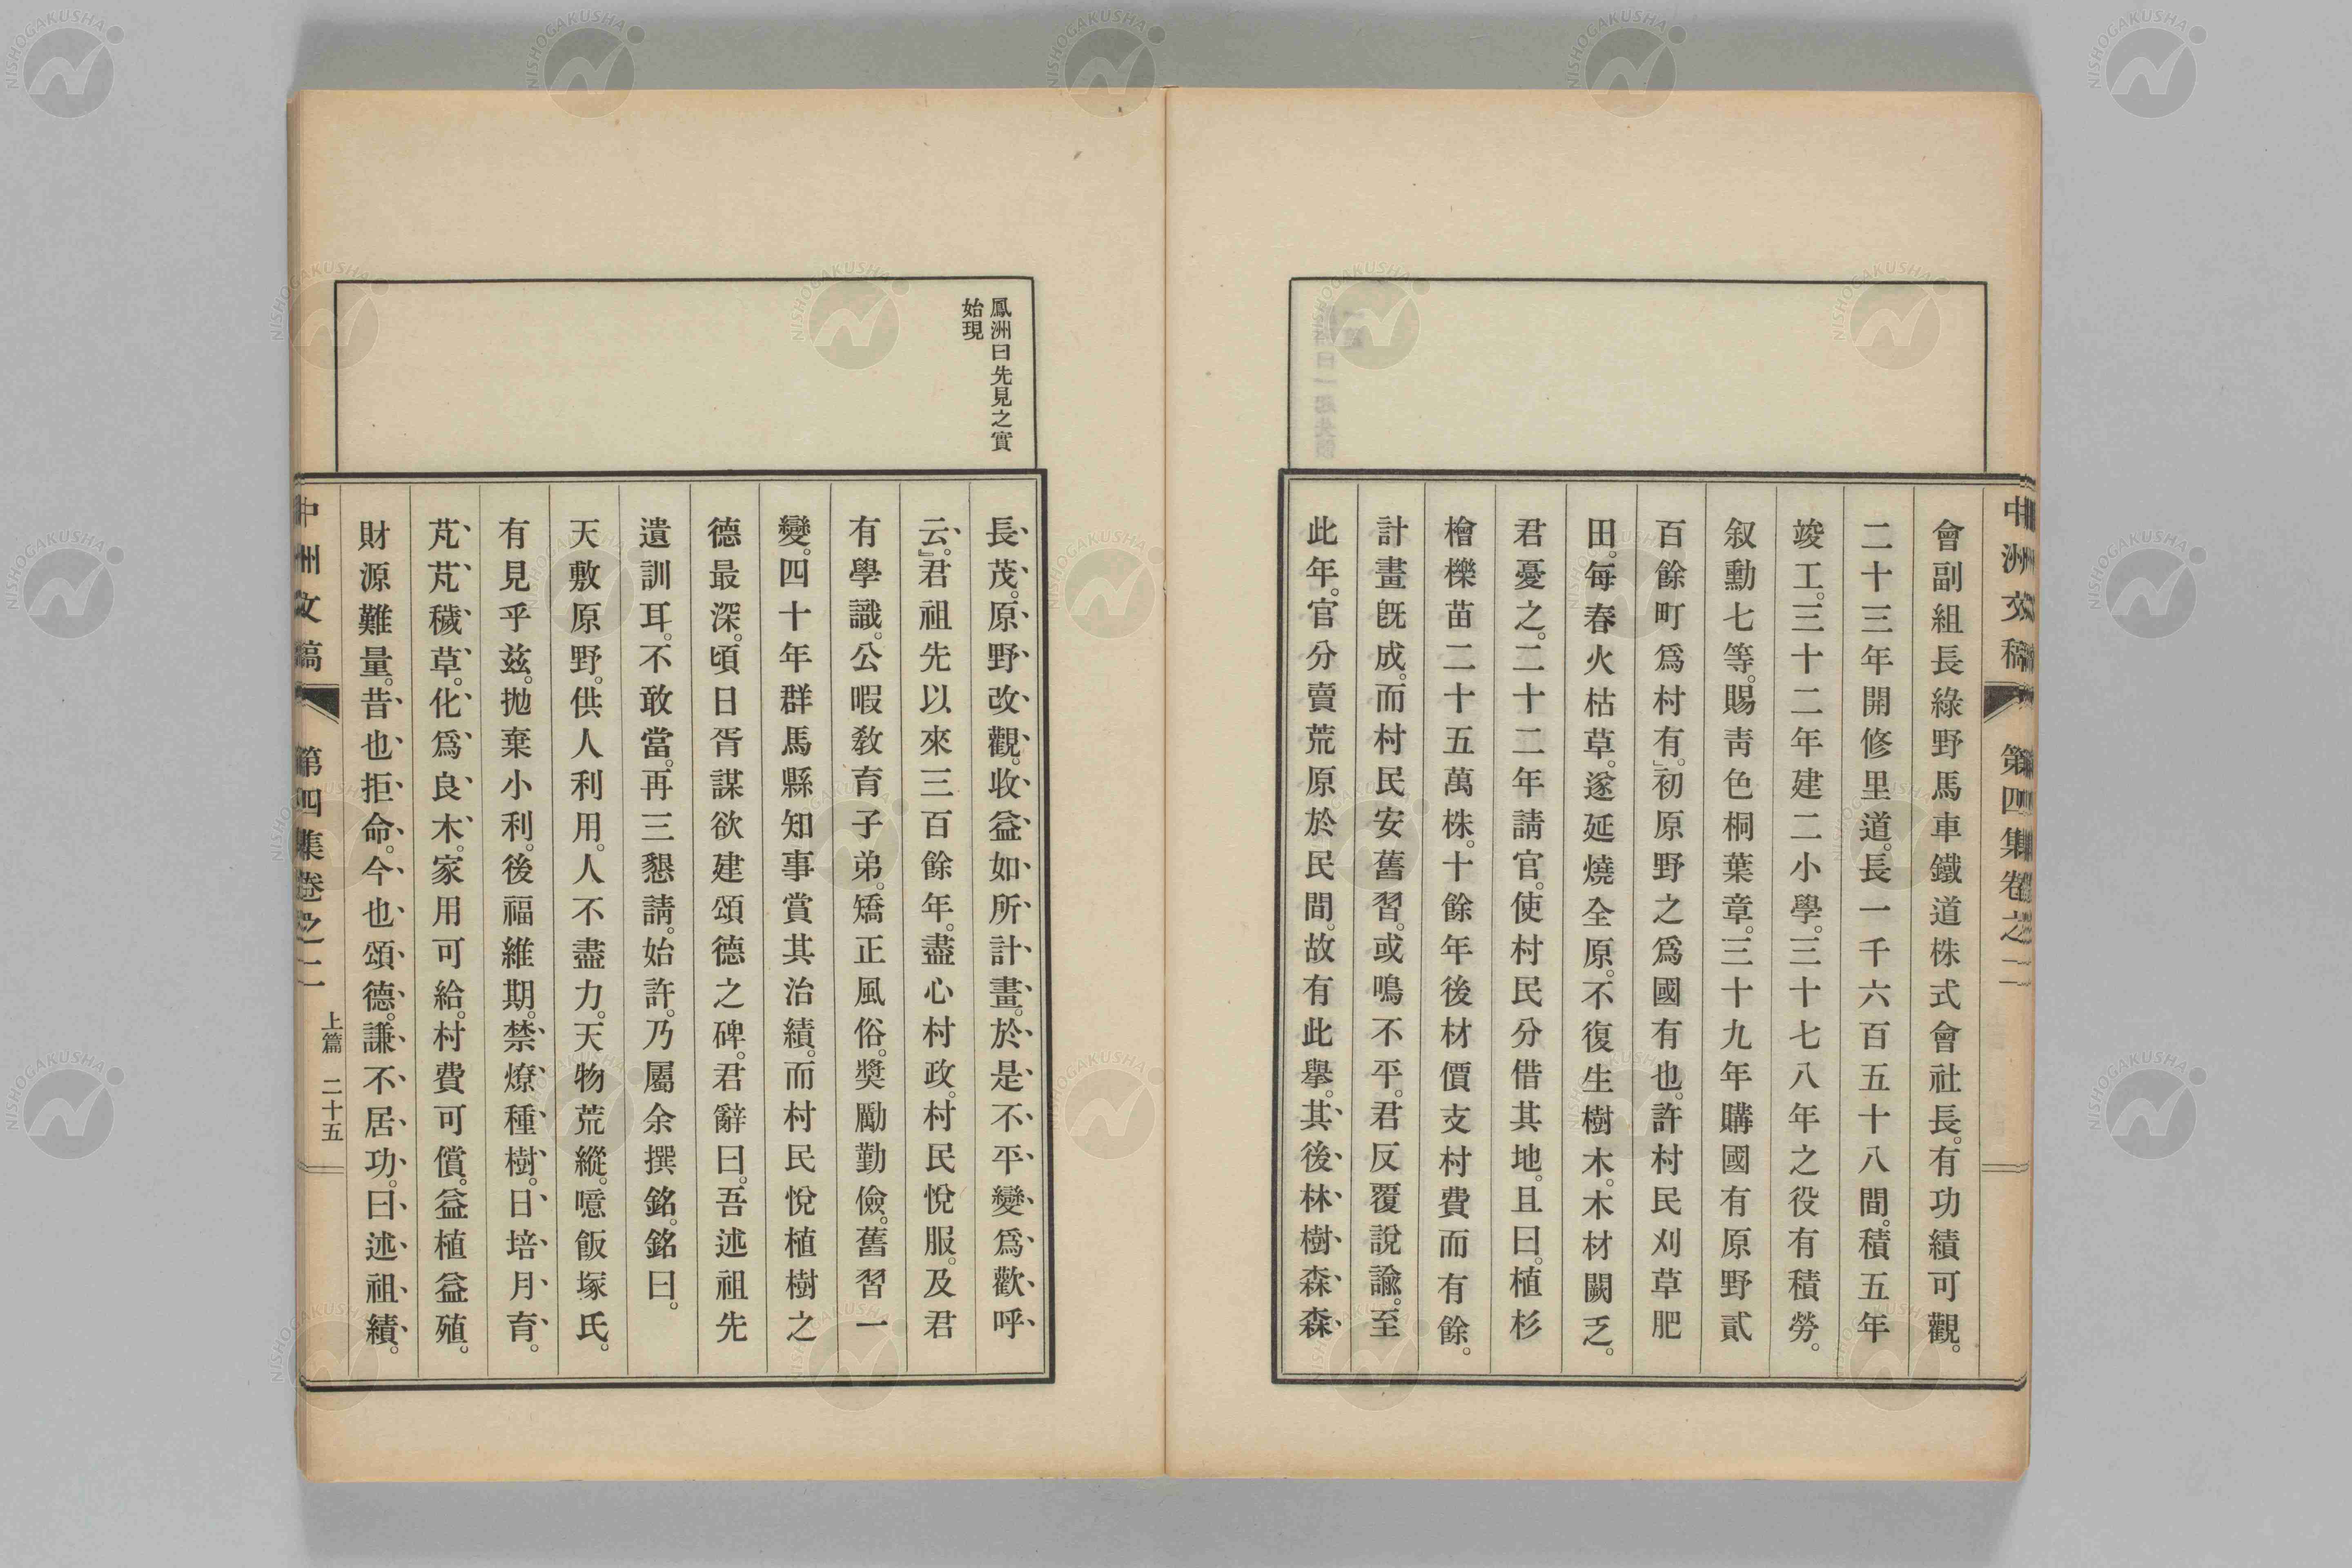 中洲文稿 第四集卷之二
會副組長綠野馬車鐵道株式會社長。有功績可觀。
二十三年開修里道。長一千六百五十八間。積五年
竣工。三十二年建二小學。三十七八年之役有積勞。
叙勳七等。賜靑色桐葉章。三十九年購國有原野貳
百餘町爲村有。」初原野之爲國有也。許村民刈草肥
田。每春火枯草。遂延燒全原。不復生樹木。木材闕乏。
君憂之。二十二年請官。使村民分借其地。且曰。植杉
檜櫟苗二十五萬株。十餘年後材價支村費而有餘。
計畫既成。而村民安舊習。或鳴不平。君反覆說諭。至
此年。官分賣荒原於民間。故有此擧。其後林樹森森
鳳洲曰先見之實
始現
長茂。原野改觀。收益如所計畫。於是不平變爲歡呼
云。」君祖先以來三百餘年。盡心村政。村民悅服。及君
有學識。公暇敎育子弟。矯正風俗。奬勵勤儉。舊習一
變。四十年群馬縣知事賞其治績。而村民悅植樹之
德最深。頃日胥謀欲建頌德之碑。君辭曰。吾述祖先
遺訓耳。不敢當。再三懇請。始許。乃屬余撰銘。銘曰。
天敷原野。供人利用。人不盡力。天物荒縱。噫飯塚氏。
有見乎玆。拋棄小利。後福維期。禁燎種樹。日培月育。
芃芃穢草。化爲良木。家用可給。村費可償。益植益殖。
財源難量。昔也拒命。今也頌德。謙不居功。曰述祖績。
中洲文稿 第四集卷之二 上篇 二十五
NISHOGAKUSHA